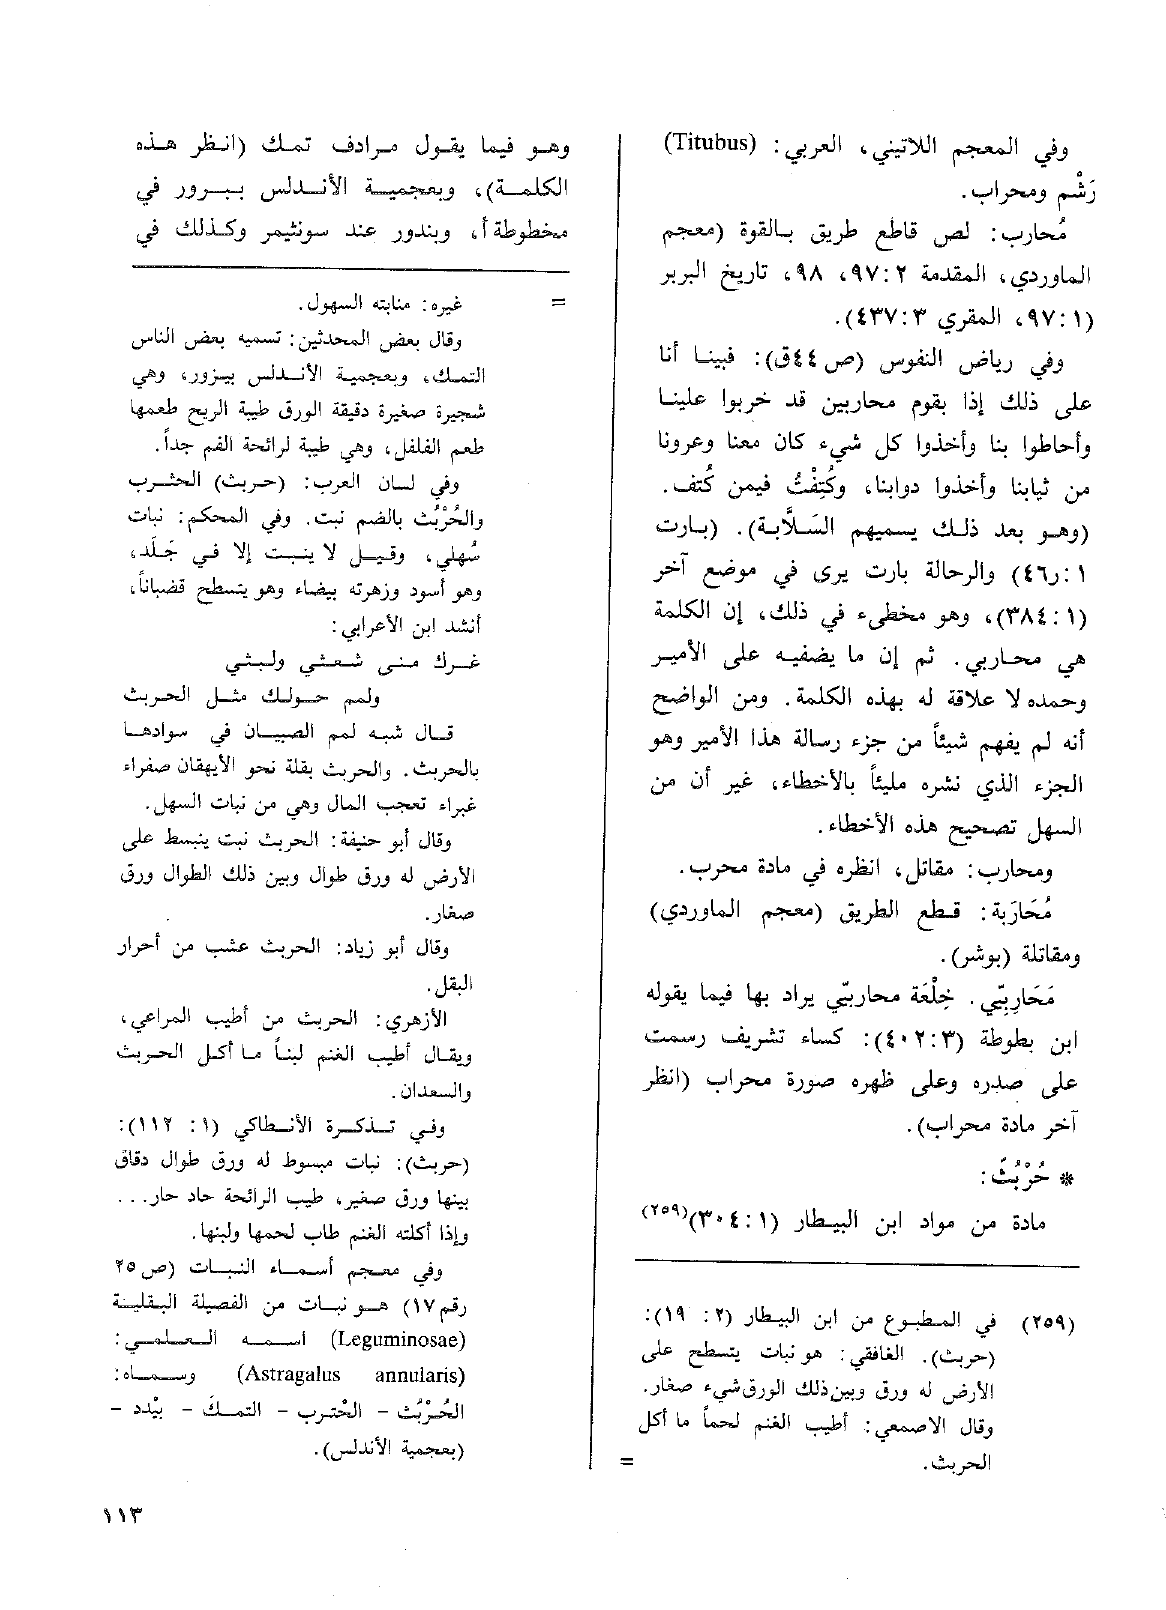 وفي المعجم اللاتيني، العربي: (Titubus)
رَشْم ومحراب.
مُحارب: لص قاطع طريق بالقوة (معجم
الماوردي، المقدمة ٢: ٩٧، ٩٨، تاريخ البربر
(١: ٩٧، المقري ٣: ٤٣٧).
وفي رياض النفوس (ص ٤٤ق): فبينا أنا
على ذلك إذا بقوم محاربين قد خربوا علينا
وأحاطوا بنا وأخذوا كل شيء كان معنا وعرونا
من ثيابنا وأخذوا دوابنا، وكُتِفْتُ فيمن كُتف.
(وهو بعد ذلك يسميهم السَلَّابة). (بارت
١: ر٤٦) والرحالة بارت يرى في موضع آخر
(١: ٣٨٤)، وهو مخطىء في ذلك، إن الكلمة
هي محاربي. ثم إن ما يضفيه على الأمير
وحمده لا علاقة له بهذه الكلمة. ومن الواضح
أنه لم يفهم شيئاً من جزء رسالة هذا الأمير وهو
الجزء الذي نشره مليئاً بالأخطاء، غير أن من
السهل تصحيح هذه الأخطاء.
ومحارب: مقاتل، انظره في مادة محرب.
مُحَارَبة: قطع الطريق (معجم الماوردي)
ومقاتلة (بوشر).
مَحَارِبيّ. خِلْعَة محاربيّي يراد بها فيما يقوله
ابن بطوطة (٣: ٤٠٢): كساء تشريف رسمت
على صدره وعلى ظهره صورة محراب (انظر
آخر مادة محراب).
* حُرْبُث:
مادة من مواد ابن البيطار (١: ٣٠٤)(٢٥٩)
(٢٥٩) في المطبوع من ابن البيطار (٢: ١٩):
(حربث). الغافقي: هو نبات يتسطح على
الأرض له ورق وبين ذلك الورق شيء صغار.
وقال الاصمعي: أطيب الغنم لحماً ما أكل
الحربث.
=
وهو فيما يقول مرادف تمك (انظر هذه
الكلمة)، وبعجمية الأندلس ببرور في
مخطوطة أ، وبندور عند سونثيمر وكذلك في
= غيره: منابته السهول.
وقال بعض المحدثين: تسميه بعض الناس
التمك، وبعجمية الأندلس بيزور، وهي
شجيرة صغيرة دقيقة الورق طيبة الريح طعمها
طعم الفلفل، وهي طيبة لرائحة الفم جداً.
وفي لسان العرب: (حربث) الحثرب
والحُرْبُث بالضم نبت. وفي المحكم: نبات
سُهلي، وقيل لا ينبت إلا في جَلَد،
وهو أسود وزهرته بيضاء وهو يتسطح قضباناً،
أنشد ابن الأعرابي:
غرك منى شعثي ولبثي
ولمم حولك مثل الحربث
قال شبه لمم الصبيان في سوادها
بالحربث. والحربث بقلة نحو الأيهقان صفراء
غبراء تعجب المال وهي من نبات السهل.
وقال أبو حنيفة: الحربث نبت ينبسط على
الأرض له ورق طوال وبين ذلك الطوال ورق
صغار.
وقال أبو زياد: الحربث عشب من أحرار
البقل.
الأزهري: الحربث من أطيب المراعي،
ويقال أطيب الغنم لبناً ما أكل الحربث
والسعدان.
وفي تذكرة الأنطاكي (١: ١١٢):
(حربث): نبات مبسوط له ورق طوال دقاق
بينها ورق صغير، طيب الرائحة حاد حار...
وإذا أكلته الغنم طاب لحمها ولبنها.
وفي معجم أسماء النبات (ص ٢٥
رقم ١٧) هو نبات من الفصيلة البقلية
(Leguminosae) اسمه العلمي:
(Astragalus annularis) وسماه:
الحُرْبُث - الحُثرب - التمك - بيْدد -
(بعجمية الأندلس).
١١٣